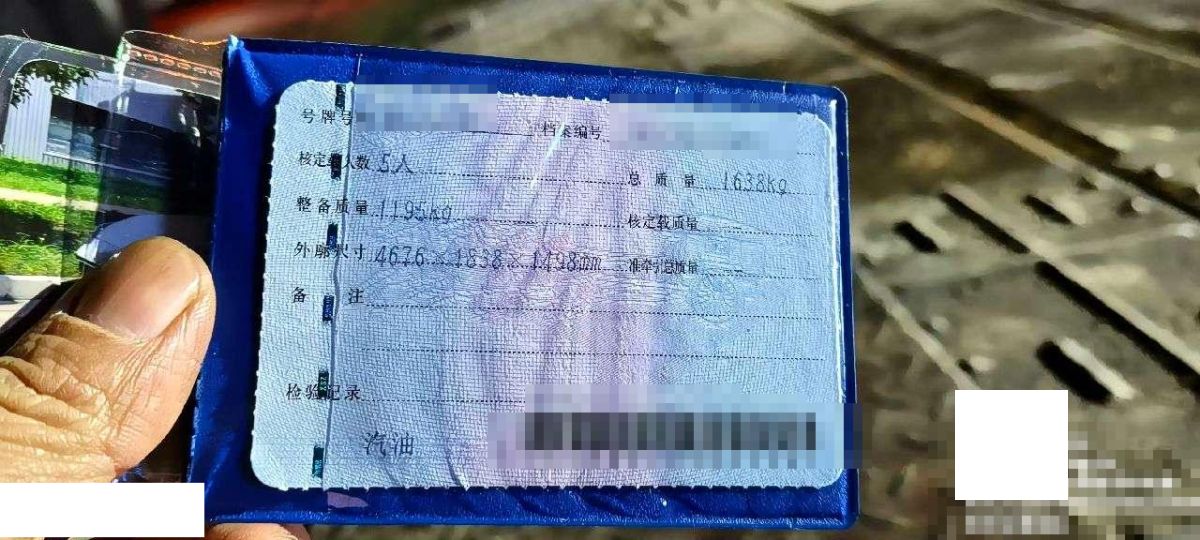 号牌号 档案编号
核定载人数 5人 总质量 1638kg
整备质量 1195kg 核定载质量 --
外廓尺寸 4676×1838×1498mm 准牵引总质量 --
备注
检验记录
汽油